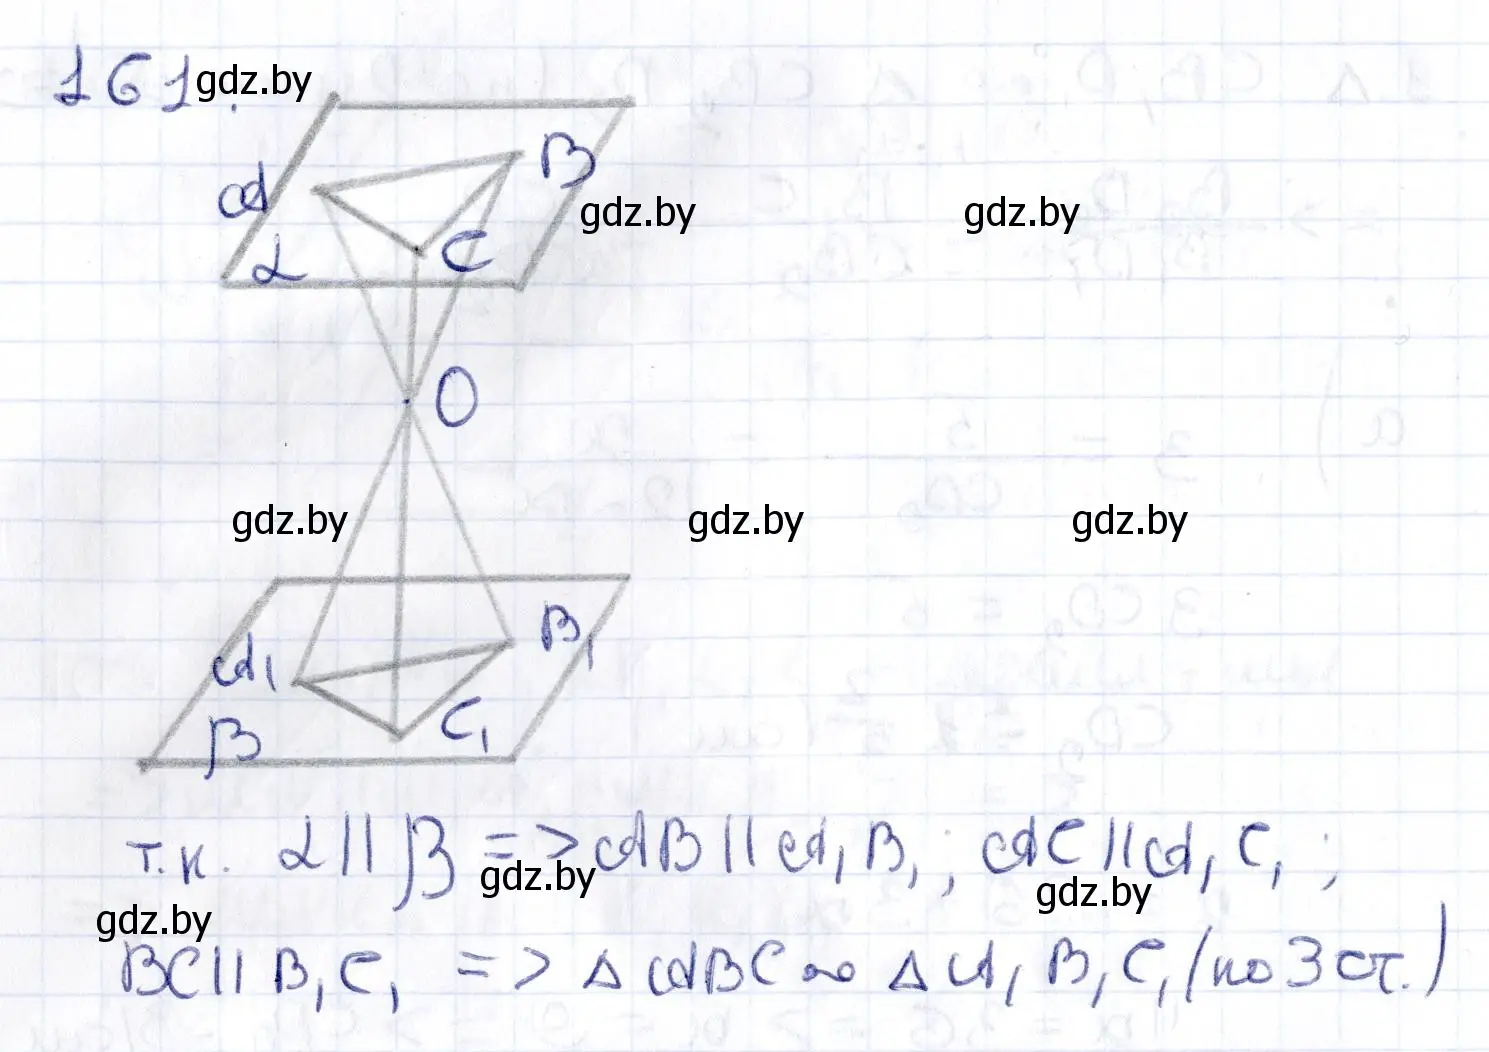 161.
gdz.by
A
B
gdz.by
gdz.by
α
C
O
gdz.by
gdz.by
gdz.by
B₁
A₁
C₁
β
т.к. α || β => AB || A₁B₁; AC || A₁C₁;
gdz.by
gdz.by
gdz.by
BC || B₁C₁ => Δ ABC ∾ Δ A₁B₁C₁ (по 3 ст.)